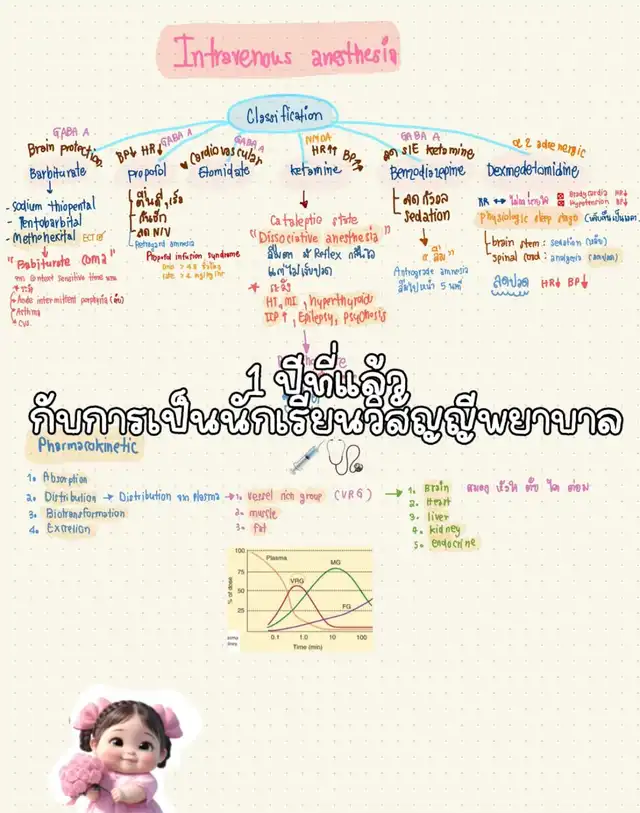 Intravenous anesthesia
Classification
GABA A
Brain protection
Barbiturate
- Sodium thiopental
- Pentobarbital
- Methohexital ECT
"Babiturate coma"
Context sensitive time
Acute intermittent porphyria (ตับ)
Asthma
CVS
GABA A
BP↓ HR↓
Propofol
ตื่นดี, เร็ว
กันชัก
ลด N/V
Retrograd amnesia
Propofol infusion syndrome
rate > 4 mg/kg/hr
GABA A
♥ Cardiovascular
Etomidate
NMDA
HR↑ BP↑
ketamine
Cataleptic state
"Dissociative anesthesia"
แต่ไม่เจ็บปวด
* ระวัง
HT, MI, hyperthyroid
ICP↑, Epilepsy, psychosis
GABA A
ลด S/E ketamine
Benzodiazepine
ลดกังวล
sedation
"ลืม"
Antrograde amnesia
ลืมไปหน้า 5 นาที
α2 adrenergic
Dexmedetomidine
Bradycardia HR↓
Hypotension BP↓
Physiologic sleep stage
brain stem : sedation (หลับ)
spinal cord : analgesia (ลดปวด)
ลดปวด HR↓ BP↓
1 ปีที่แล้ว
กับการเป็นนักเรียนวิสัญญีพยาบาล
Pharmacokinetic
1. Absorption
2. Distribution → Distribution จาก Plasma → 1. Vessel rich group (VRG) → 1. Brain สมอง หัวใจ ตับ ไต ต่อม
2. muscle
3. fat
2. Heart
3. liver
4. kidney
5. endocrine
3. Biotransformation
4. Excretion
% of dose
100
75
50
25
Plasma
VRG
MG
FG
0.1 1.0 10 100
Time (min)